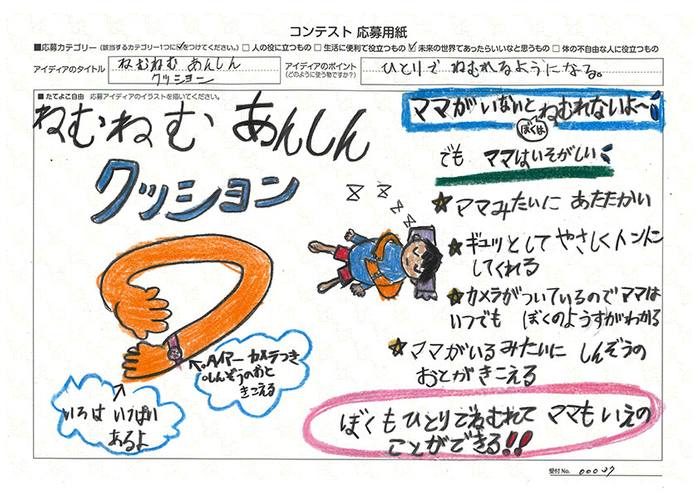 コンテスト 応募用紙
■応募カテゴリー（該当するカテゴリー1つに✓をつけてください。） □ 人の役に立つもの □ 生活に便利で役立つもの ☑ 未来の世界であったらいいなと思うもの □ 体の不自由な人に役立つもの
アイディアのタイトル
ねむねむ あんしん
クッション
アイディアのポイント
（どのように使う物ですか？）
ひとりで ねむれるようになる。
■ たてよこ自由 応募アイディアのイラストを描いてください。
ねむねむ あんしん
クッション
ママがいないと ねむれないよ〜
ぼくは
でも ママはいそがしい
★ママみたいに あたたかい
★ギュッとして やさしくトントンに
してくれる
★カメラがついているので ママは
いつでも ぼくのようすがわかる
★ママがいるみたいに しんぞうの
おとがきこえる
カメラつき
しんぞうのおと
きこえる
いろは いっぱい
あるよ
ぼくもひとりでねむれて ママもいえの
ことができる!!
受付No. 00037